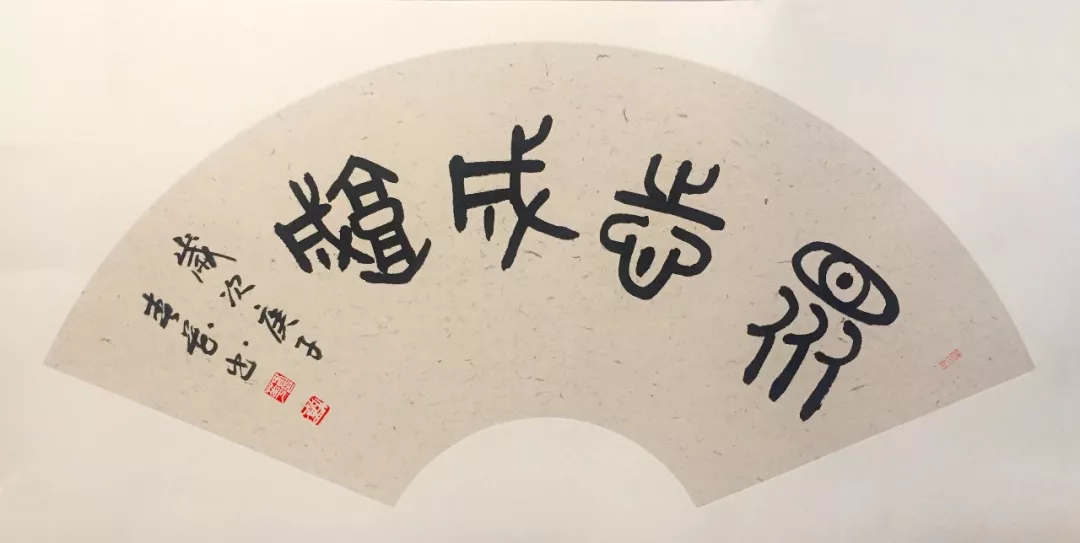 眾志成城
歲次庚子